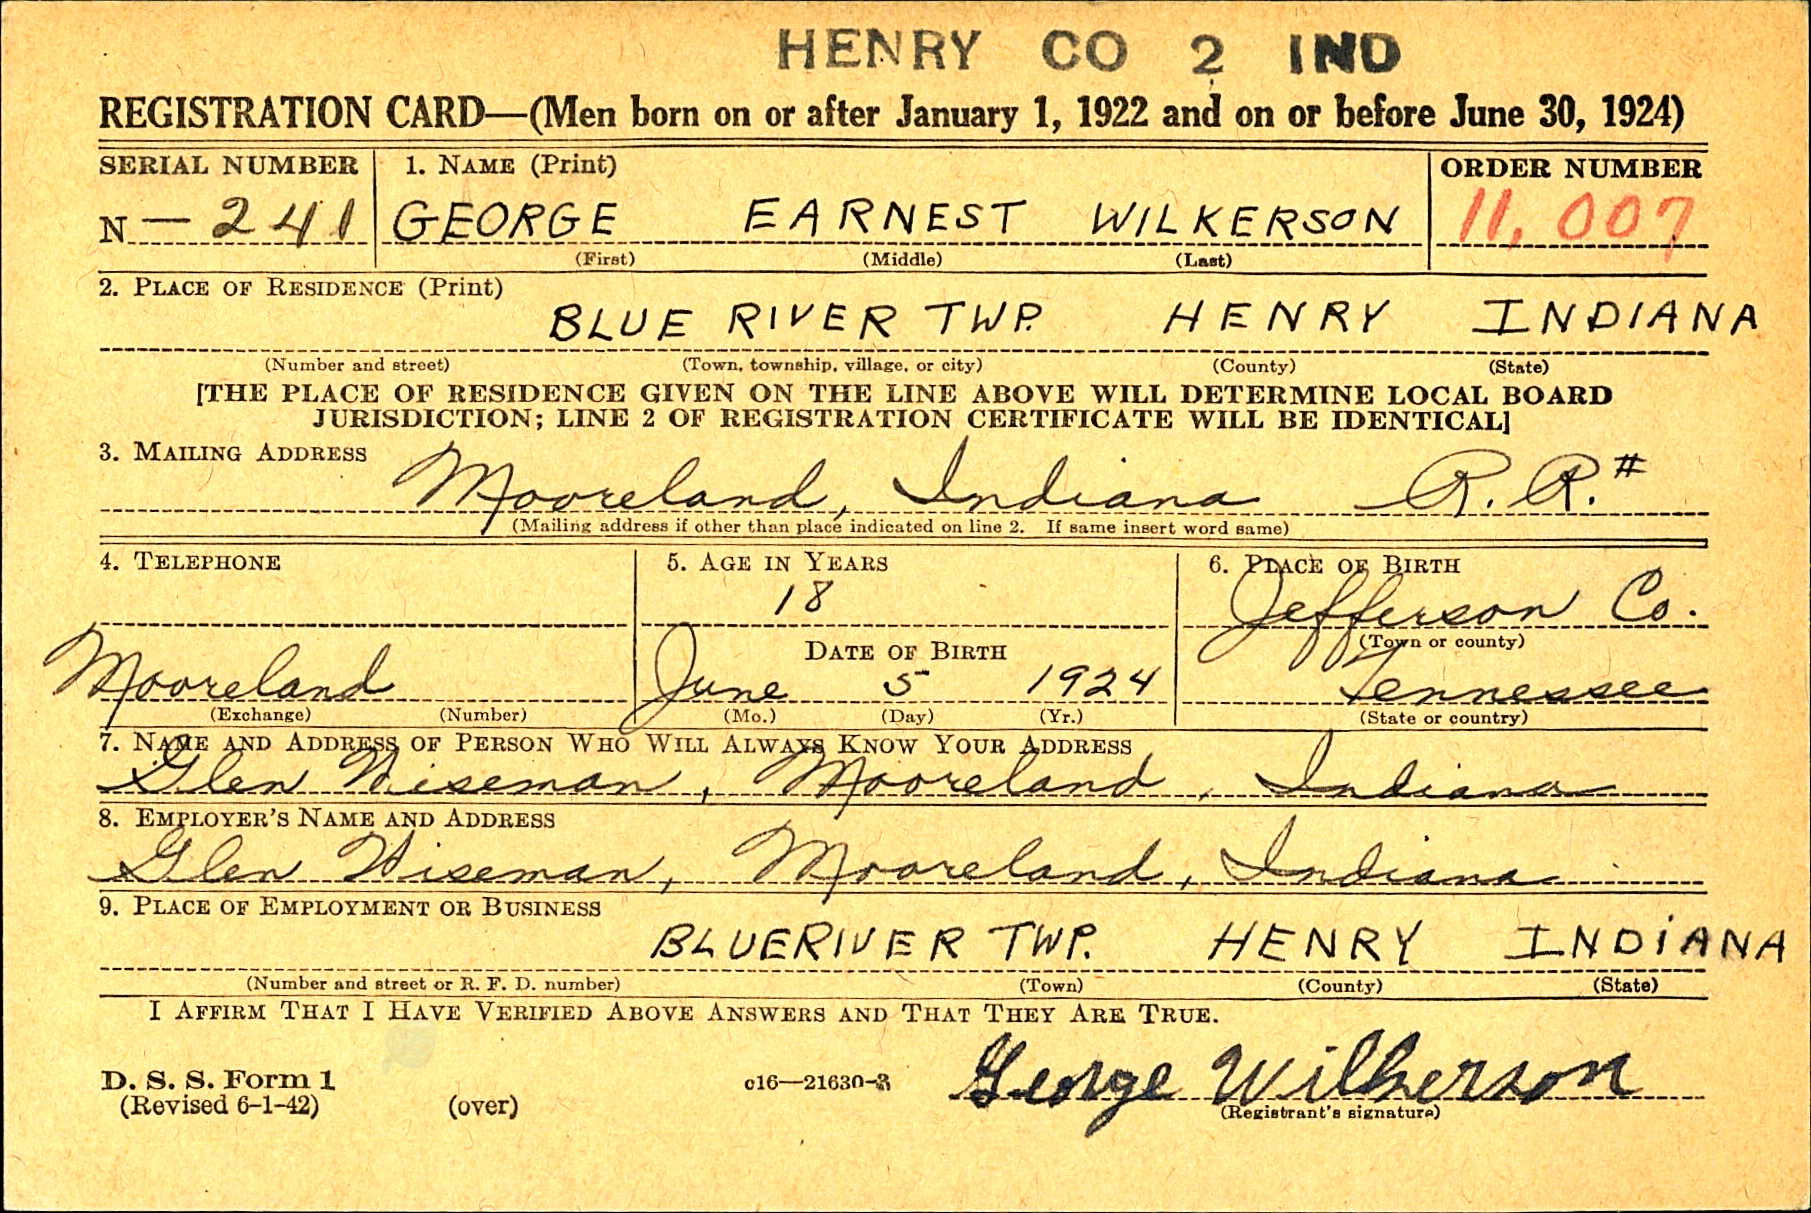 HENRY CO 2 IND
REGISTRATION CARD—(Men born on or after January 1, 1922 and on or before June 30, 1924)
SERIAL NUMBER 1. NAME (Print) ORDER NUMBER
N—241 GEORGE EARNEST WILKERSON 11,007
(First) (Middle) (Last)
2. PLACE OF RESIDENCE (Print)
BLUE RIVER TWP. HENRY INDIANA
(Number and street) (Town, township, village, or city) (County) (State)
[THE PLACE OF RESIDENCE GIVEN ON THE LINE ABOVE WILL DETERMINE LOCAL BOARD
JURISDICTION; LINE 2 OF REGISTRATION CERTIFICATE WILL BE IDENTICAL]
3. MAILING ADDRESS
Mooreland, Indiana R. R. #
(Mailing address if other than place indicated on line 2. If same insert word same)
4. TELEPHONE 5. AGE IN YEARS 6. PLACE OF BIRTH
18 Jefferson Co.
DATE OF BIRTH (Town or county)
Mooreland June 5 1924 Tennessee
(Exchange) (Number) (Mo.) (Day) (Yr.) (State or country)
7. NAME AND ADDRESS OF PERSON WHO WILL ALWAYS KNOW YOUR ADDRESS
Glen Wiseman, Mooreland, Indiana
8. EMPLOYER'S NAME AND ADDRESS
Glen Wiseman, Mooreland, Indiana
9. PLACE OF EMPLOYMENT OR BUSINESS
BLUERIVER TWP. HENRY INDIANA
(Number and street or R. F. D. number) (Town) (County) (State)
I AFFIRM THAT I HAVE VERIFIED ABOVE ANSWERS AND THAT THEY ARE TRUE.
D. S. S. Form 1 c16—21630-3 George Wilkerson
(Revised 6-1-42) (over) (Registrant's signature)